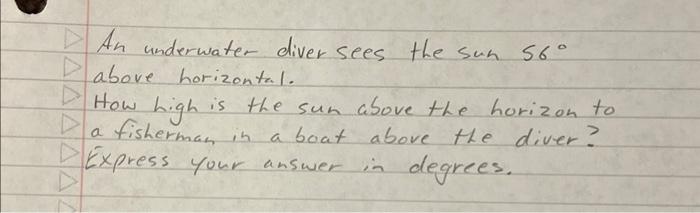 An underwater diver sees the sun 56°
above horizontal.
How high is the sun above the horizon to
a fisherman in a boat above the diver?
Express your answer in degrees.